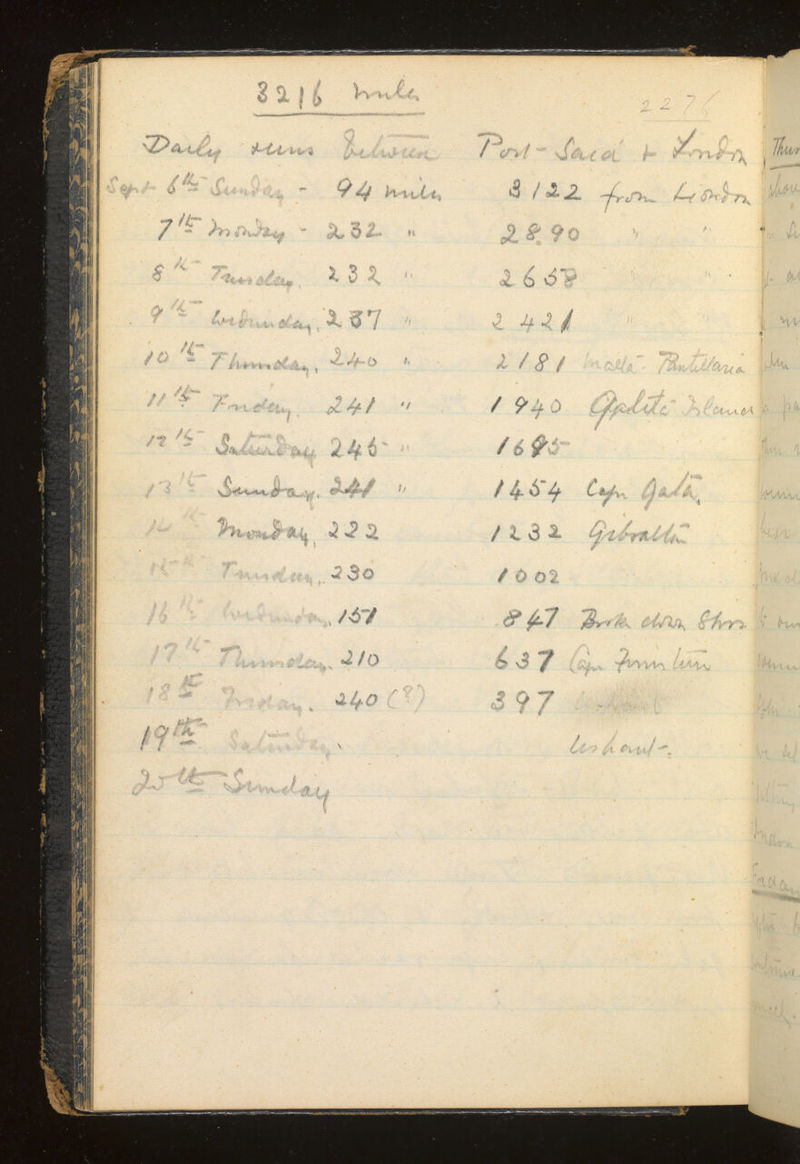 3216 miles
2276
Daily runs between Port-Said & London
Sept 6th Sunday - 94 miles 3122 from London
7th Monday - 232 " 2890 " "
8th Tuesday. 232 " 2658 " "
9th Wednesday. 237 " 2421 " "
10th Thursday. 240 " 2181 Malta - Pantillaria
11th Friday. 241 " 1940 Galita Island
12th Saturday 245 " 1695
13th Sunday. 241 " 1454 Cape Gata.
14th Monday. 222 1232 Gibraltar
15th Tuesday. 230 1002
16th Wednesday. 151 847 Broke down 8hrs
17th Thursday. 210 637 Cape Finisterre
18th Friday. 240 (?) 397
19th Saturday. Ushant -.
20th Sunday